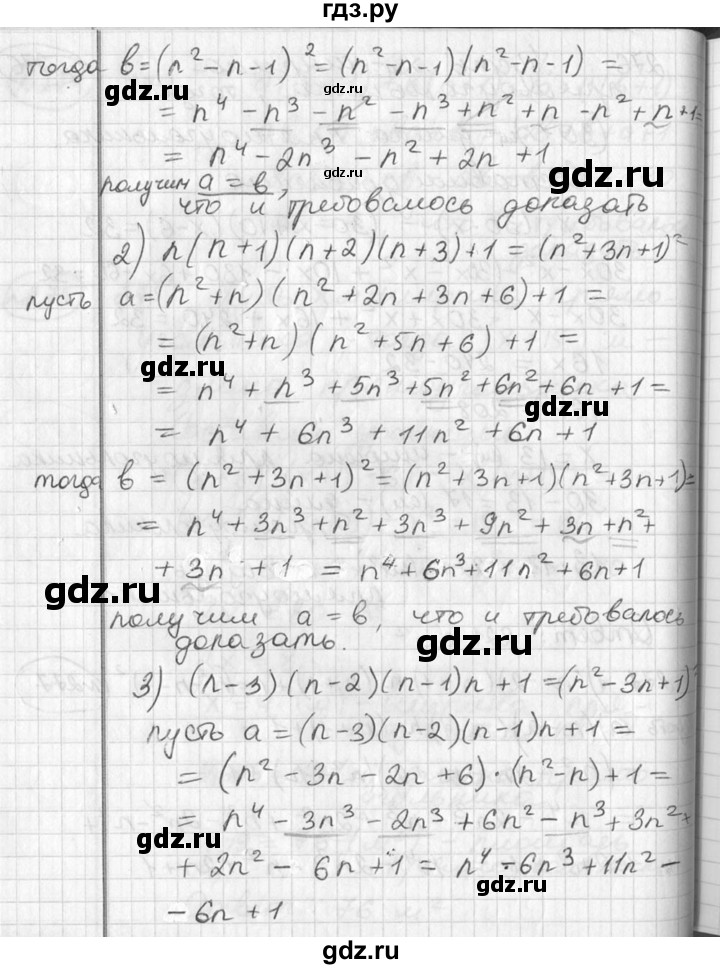 гдз.ру
тогда в=(n²-n-1)²=(n²-n-1)(n²-n-1)=
gdz.ru
= n⁴-n³-n²-n³+n²+n-n²+n+1=
gdz.ru
= n⁴-2n³-n²+2n+1
получим a=в,
что и требовалось доказать
2) n(n+1)(n+2)(n+3)+1=(n²+3n+1)²
пусть a=(n²+n)(n²+2n+3n+6)+1=
= (n²+n)(n²+5n+6)+1=
gdz.ru
gdz.ru
= n⁴+n³+5n³+5n²+6n²+6n+1=
= n⁴+6n³+11n²+6n+1
тогда в=(n²+3n+1)²=(n²+3n+1)(n²+3n+1)=
= n⁴+3n³+n²+3n³+9n²+3n+n²+
+3n+1 = n⁴+6n³+11n²+6n+1
gdz.ru
получим a=в, что и требовалось
gdz.ru
доказать.
3) (n-3)(n-2)(n-1)n+1=(n²-3n+1)²
пусть a=(n-3)(n-2)(n-1)n+1=
= (n²-3n-2n+6)·(n²-n)+1=
= n⁴-3n³-2n³+6n²-n³+3n²+
gdz.ru
+2n²-6n+1 = n⁴-6n³+11n²-
gdz.ru
-6n+1
gdz.ru